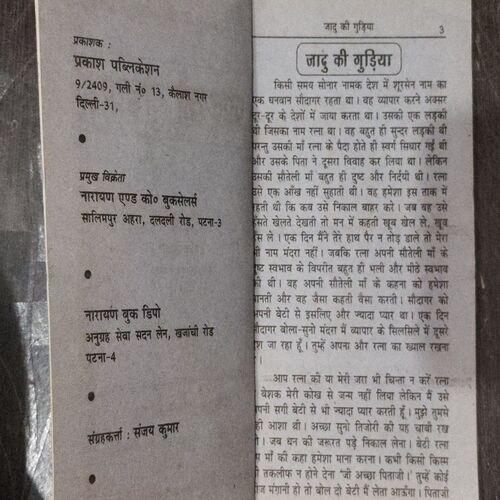 प्रकाशक :
प्रकाश पब्लिकेशन
9/2409, गली नं० 13, कैलाश नगर
दिल्ली-31,
प्रमुख विक्रेता
नारायण एण्ड को० बुकसेलर्स
सालिमपुर अहरा, दलदली रोड, पटना-3
नारायण बुक डिपो
अनुग्रह सेवा सदन लेन, खजांची रोड
पटना-4
संग्रहकर्त्ता : संजय कुमार
जादु की गुड़िया 3
जादु की गुड़िया
किसी समय सोनार नामक देश में शूरसेन नाम का
एक धनवान सौदागर रहता था। वह व्यापार करने अक्सर
दूर-दूर के देशों में जाया करता था। उसकी एक लड़की
थी जिसका नाम रत्ना था। वह बहुत ही सुन्दर लड़की थी
परन्तु उसकी माँ रत्ना के पैदा होते ही स्वर्ग सिधार गई थी
और उसके पिता ने दूसरा विवाह कर लिया था। लेकिन
उसकी सौतेली माँ बहुत ही दुष्ट और निर्दयी थी। रत्ना
उसे एक आँख नहीं सुहाती थी। वह हमेशा इस ताक में
रहती थी कि कब उसे निकाल बाहर करे। जब वह उसे
हँसते खेलते देखती तो मन में कहती खूब खेल ले, खूब
हँस ले। एक दिन मैंने तेरे हाथ पैर न तोड़ डाले तो मेरा
भी नाम मंदरा नहीं। जबकि रत्ना अपनी सौतेली माँ के
दुष्ट स्वभाव के विपरीत बहुत ही भली और मीठे स्वभाव
की थी। वह अपनी सौतेली माँ के कहना को हमेशा
मानती और वह जैसा कहती वैसा करती। सौदागर को
अपनी बेटी से इसलिए और ज्यादा प्यार था। एक दिन
सौदागर बोला-सुनो मंदरा मैं व्यापार के सिलसिले में दूसरे
देश जा रहा हूँ। तुम्हें अपना और रत्ना का ख्याल रखना
।
आप रत्ना की या मेरी जरा भी चिन्ता न करें रत्ना
बेशक मेरी कोख से जन्म नहीं लिया लेकिन मैं उसे
अपनी सगी बेटी से भी ज्यादा प्यार करती हूँ। मुझे तुमसे
ही आशा थी। अच्छा सुनो तिजोरी की यह चाबी रख
। जब धन की जरूरत पड़े निकाल लेना। बेटी रत्ना
माँ की कहा हमेशा माना करना। कभी किसी किस्म
की तकलीफ न होने देना 'जी अच्छा पिताजी।' तुम्हें कोई
चीज मंगानी हो तो बोल दो बेटी मैं लेता आऊँगा। पिताजी